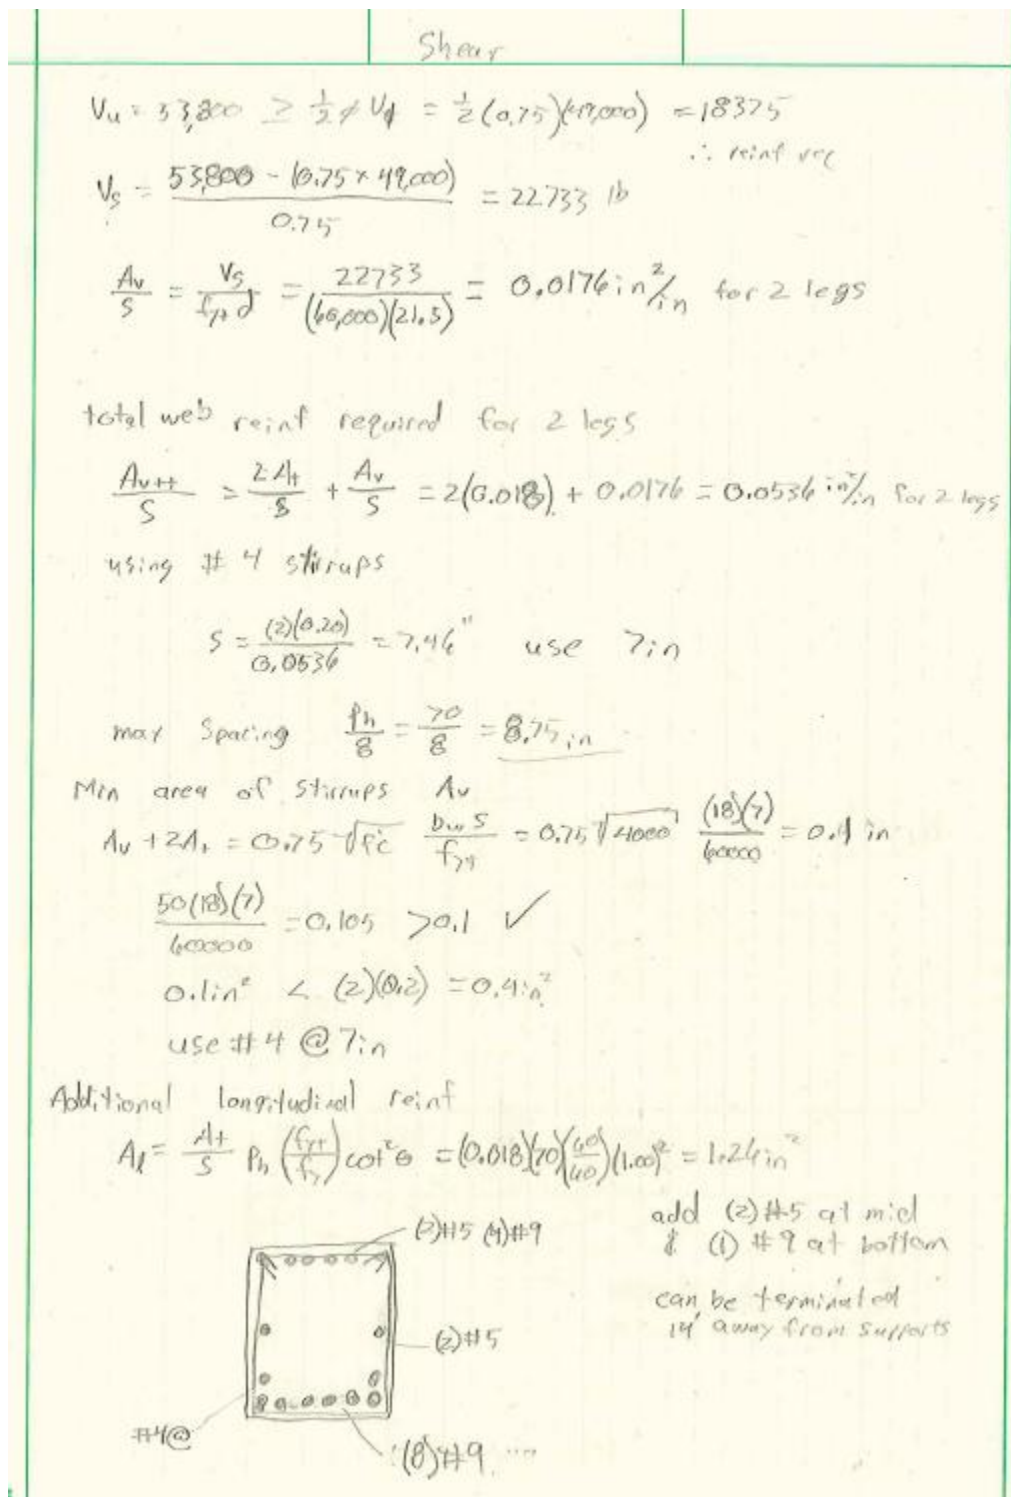 Shear
Vu = 53,800 ≥ ½ φ Vc = ½ (0.75)(49,000) = 18375
∴ reinf req
Vs = (53,800 - (0.75 × 49,000)) / 0.75 = 22733 lb
Av/S = Vs/(fyt d) = 22733/((60,000)(21.5)) = 0.0176 in²/in for 2 legs
total web reinf required for 2 legs
Av+t/S = 2At/S + Av/S = 2(0.018) + 0.0176 = 0.0536 in²/in for 2 legs
using #4 stirrups
S = (2)(0.20)/0.0536 = 7.46" use 7in
max Spacing Ph/8 = 70/8 = 8.75 in
Min area of stirrups Av
Av + 2At = 0.75 √fc (bw s)/fyt = 0.75 √4000 (18)(7)/60000 = 0.1 in
50(18)(7)/60000 = 0.105 >0.1 ✓
0.1in² < (2)(0.2) = 0.4in²
use #4 @ 7in
Additional longitudinal reinf
Al = At/S Ph (fyt/fy) cot²θ = (0.018)(70)(60/60)(1.00)² = 1.26in²
add (2) #5 at mid
& (1) #9 at bottom
can be terminated
14' away from supports
(2)#5 (4)#9
(2)#5
#4@
(8)#9